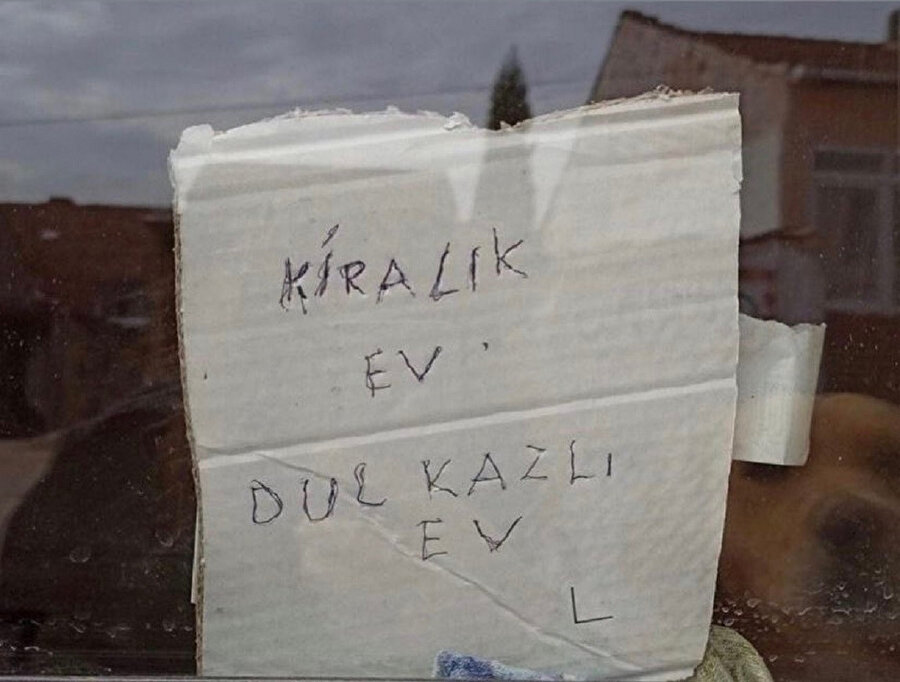 KİRALIK
EV
DUL KAZLI
EV
L